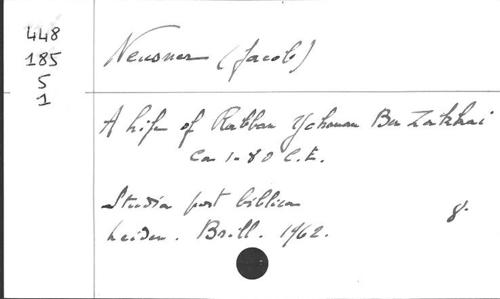 448
185
5
1
Neusner (Jacob)
A Life of Rabban Yohanan Ben Zakkai
Ca 1-80 C.E.
Studia post biblica
Leiden. Brill. 1962.
8.